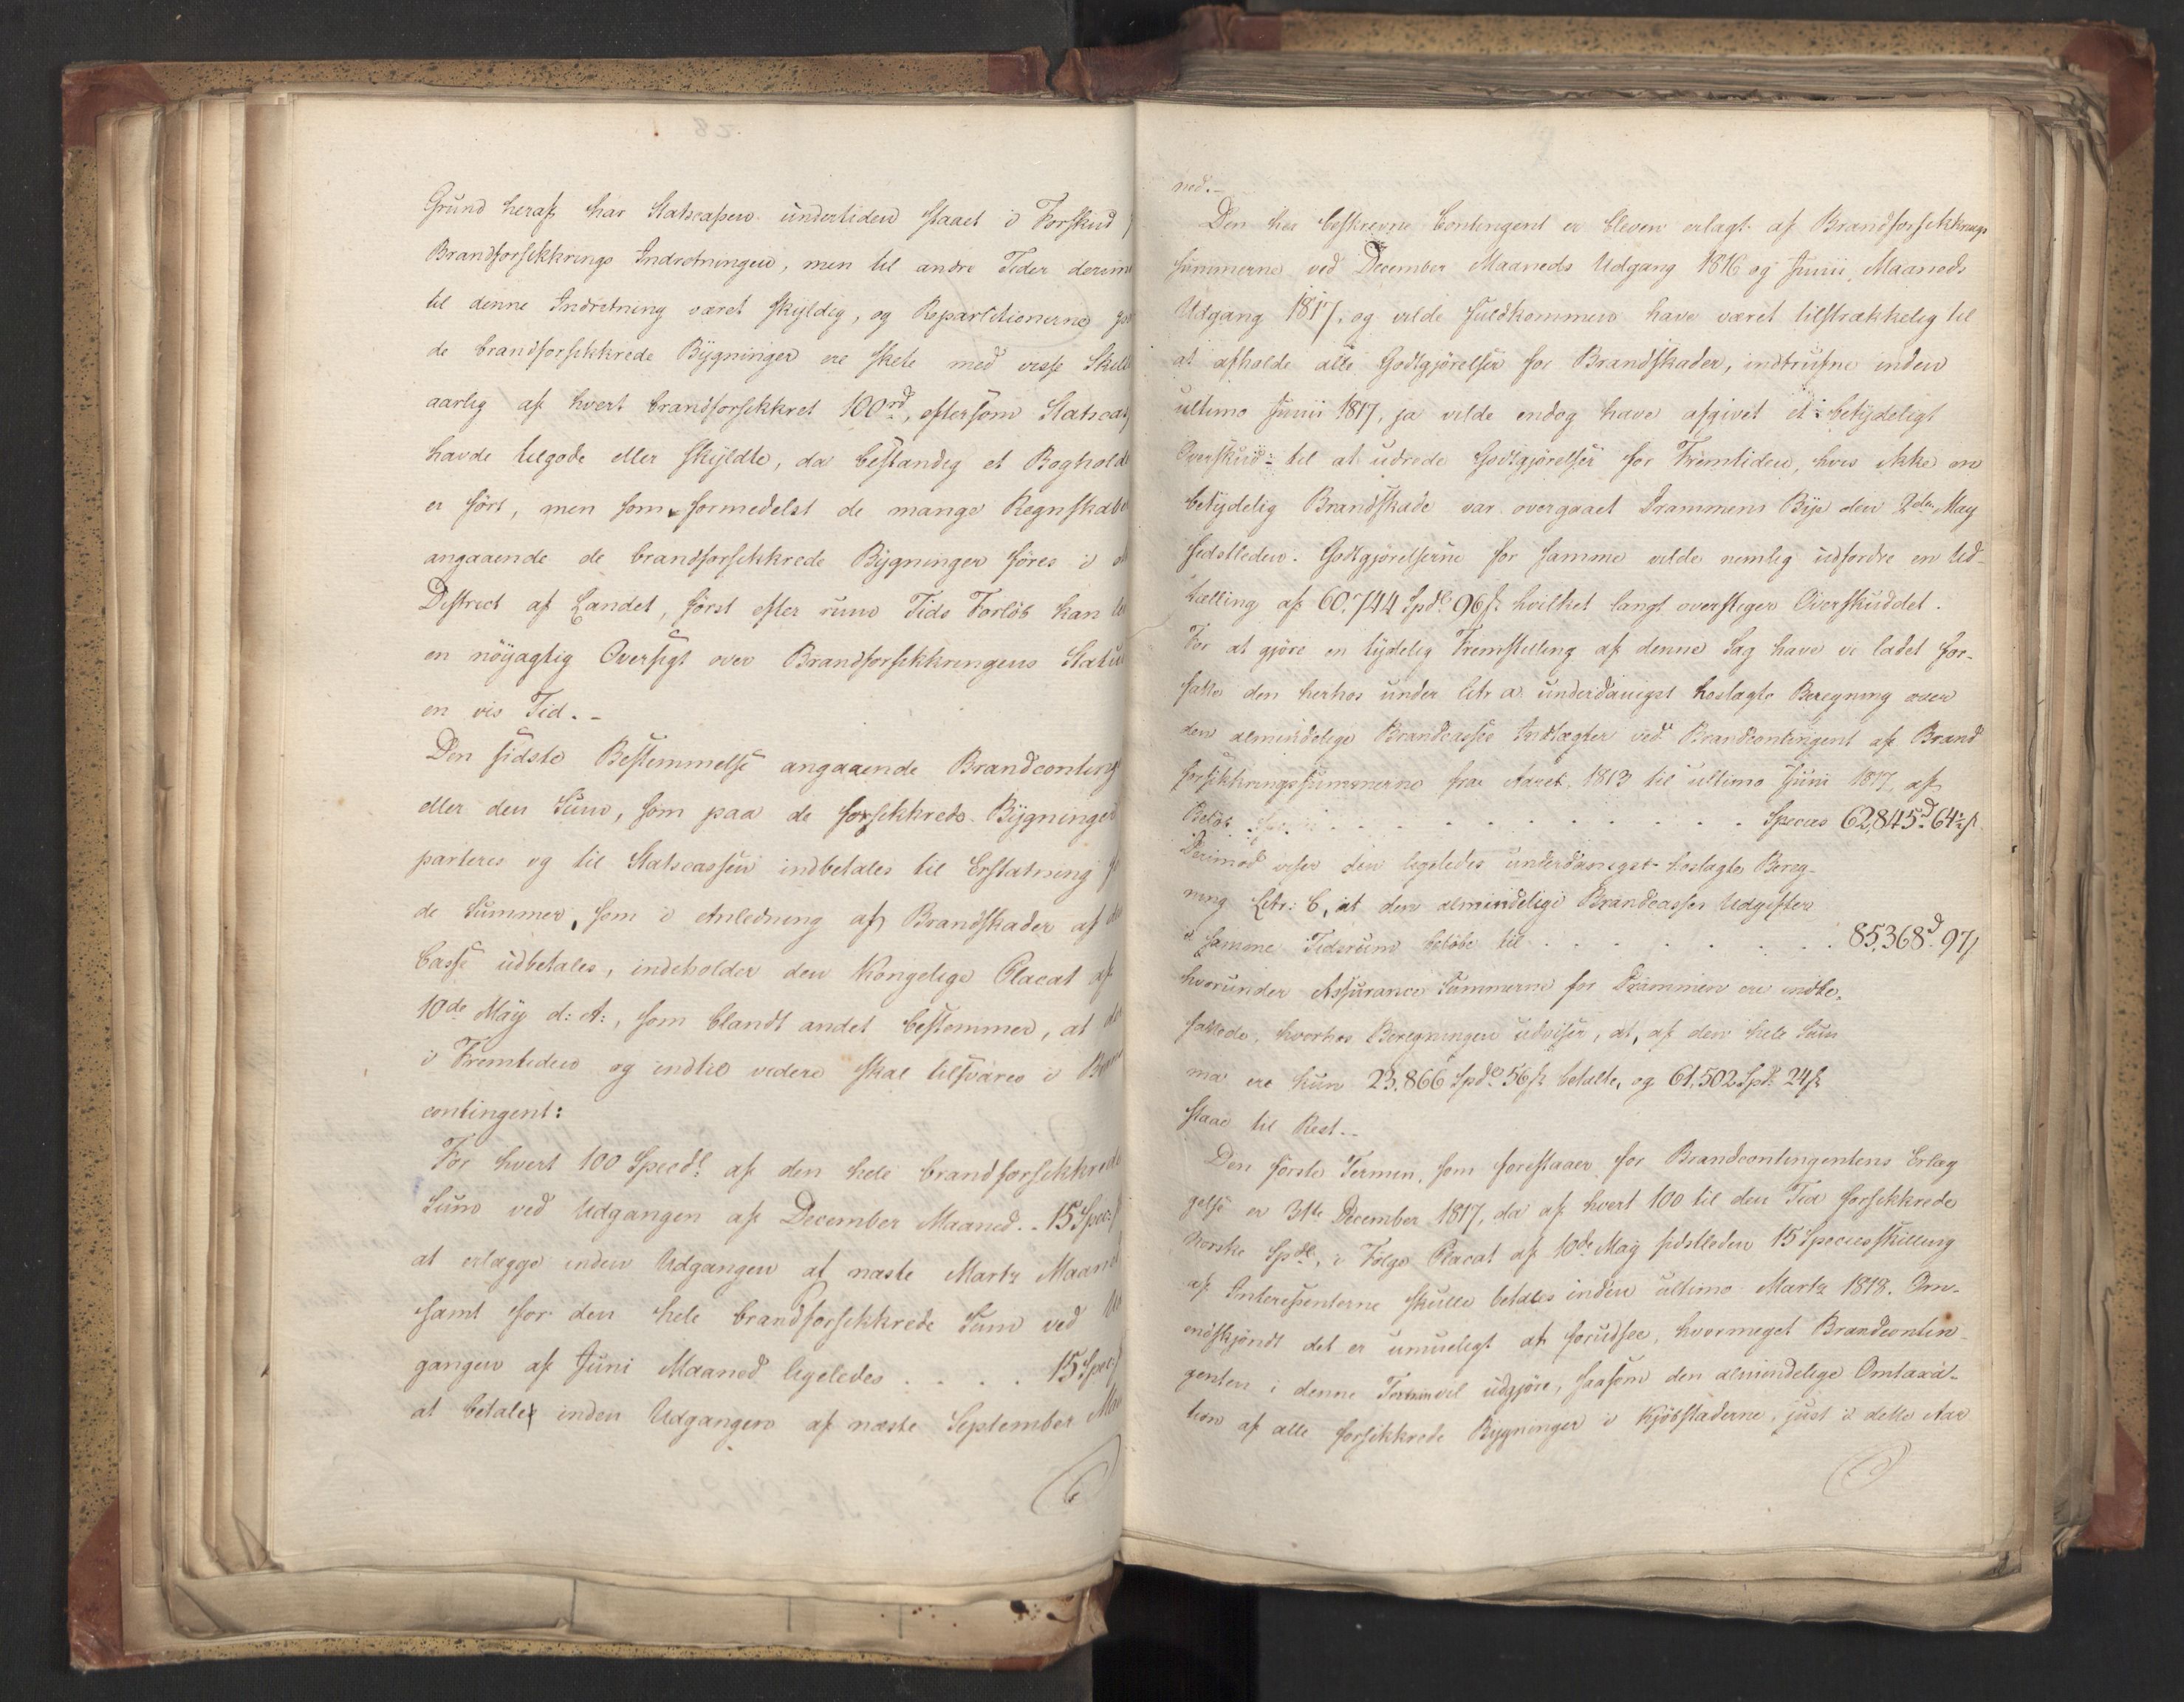 Grund heraf har Statscassen undertiden staaet i Forskud
Brandforsikkrings Indretningen, men til andre Tider derim
til denne Indretning været skyldig, og Repartitionerne
de brandforsikkrede Bygninger ere skete med visse Skill
aarlig af hvert brandforsikkret 100rd, eftersom Statscas
havde tilgode eller skyldte, da bestandig et Boghold
er ført, men som formedelst de mange Regnskaber
angaaende de brandforsikkrede Bygninger føres i
District af Landet, først efter rum Tids Forløb kan
en nøyagtig Oversigt over Brandforsikkringens Status
en vis Tid. -
Den sidste Bestemmelse angaaende Brandconting
eller den Sum, som paa de forsikkrede Bygninger
parteres og til Statscassen indbetales til Erstatning
de Summer, som i Anledning af Brandskader af
Casse udbetales, indeholder den Kongelige Placat af
10de May d: A:, som blandt andet bestemmer, at
i Fremtiden og indtil videre skal tilsvares i
contingent:
For hvert 100 Specdl: af den hele brandforsikkrede
Sum ved Udgangen af December Maaned. - 15 Spec:
at erlægge inden Udgangen af næste Martz Maaned
samt for den hele brandforsikkrede Sum ved
gangen af Juni Maaned ligeledes . . . . 15 Spec:
at betales inden Udgangen af næste September
ned. -
Den her beskrevne Contingent er bleven erlagt af Brandforsikkrings
summerne ved December Maaneds Udgang 1816 og Junii Maaneds
Udgang 1817, og vilde fuldkommen have været tilstrækkelig til
at afholde alle Godtgjørelser for Brandskader, indtrufne inden
ultimo Junii 1817, ja vilde endog have afgivet et betydeligt
Overskud til at udrede Godtgjørelser for Fremtiden, hvis ikke en
betydelig Brandskade var overgaaet Drammens Bye den 2den May
sidstleden. Godtgjørelserne for samme vilde nemlig udfordre en Ud-
tælling af 60,744 Spdl 96 s. hvilket langt overstiger Overskuddet.
For at gjøre en tydelig Fremstilling af denne Sag have vi ladet for-
fatte den herhos under Litr a underdanigst hoslagte Beregning over
den almindelige Brandcasses Indtægter ved Brandcontingent af Brand
forsikkringssummerne fra Aaret 1813 til ultimo Juni 1817, af
Beløb . . . . . . . . . . . . . Species 62,845d 64½ s.
Derimod viser den ligeledes underdanigst hoslagte Bereg-
ning Litr: b, at den almindelige Brandcasses Udgifter
i samme Tidsrum beløbe til . . . . . . . . 85,368d. 97 s
hvorunder Assurance Summerne for Drammen ere indbe-
fattede, hvorhos Beregningen udviser, at, af den hele Sum
ma ere kun 23,866 Spdl 56 s. betalte, og 61,502 Spd: 24 s.
staae til Rest. -
Den første Termin, som forestaaer for Brandcontingentens Erlæg
gelse er 31te December 1817, da af hvert 100 til den Tid forsikkrede
Norske Spdl, i Følge Placat af 10de May sidstleden 15 Speciesskilling
af Interessenterne skulle betales inden ultimo Martz 1818. Om-
endskjøndt det er umueligt at forudsee, hvormeget Brandcontin-
genten i denne Termin vil udgjøre, saasom den almindelige Omtaxa-
tion af alle forsikkrede Bygninger i Kjøbstæderne, just i dette Aar